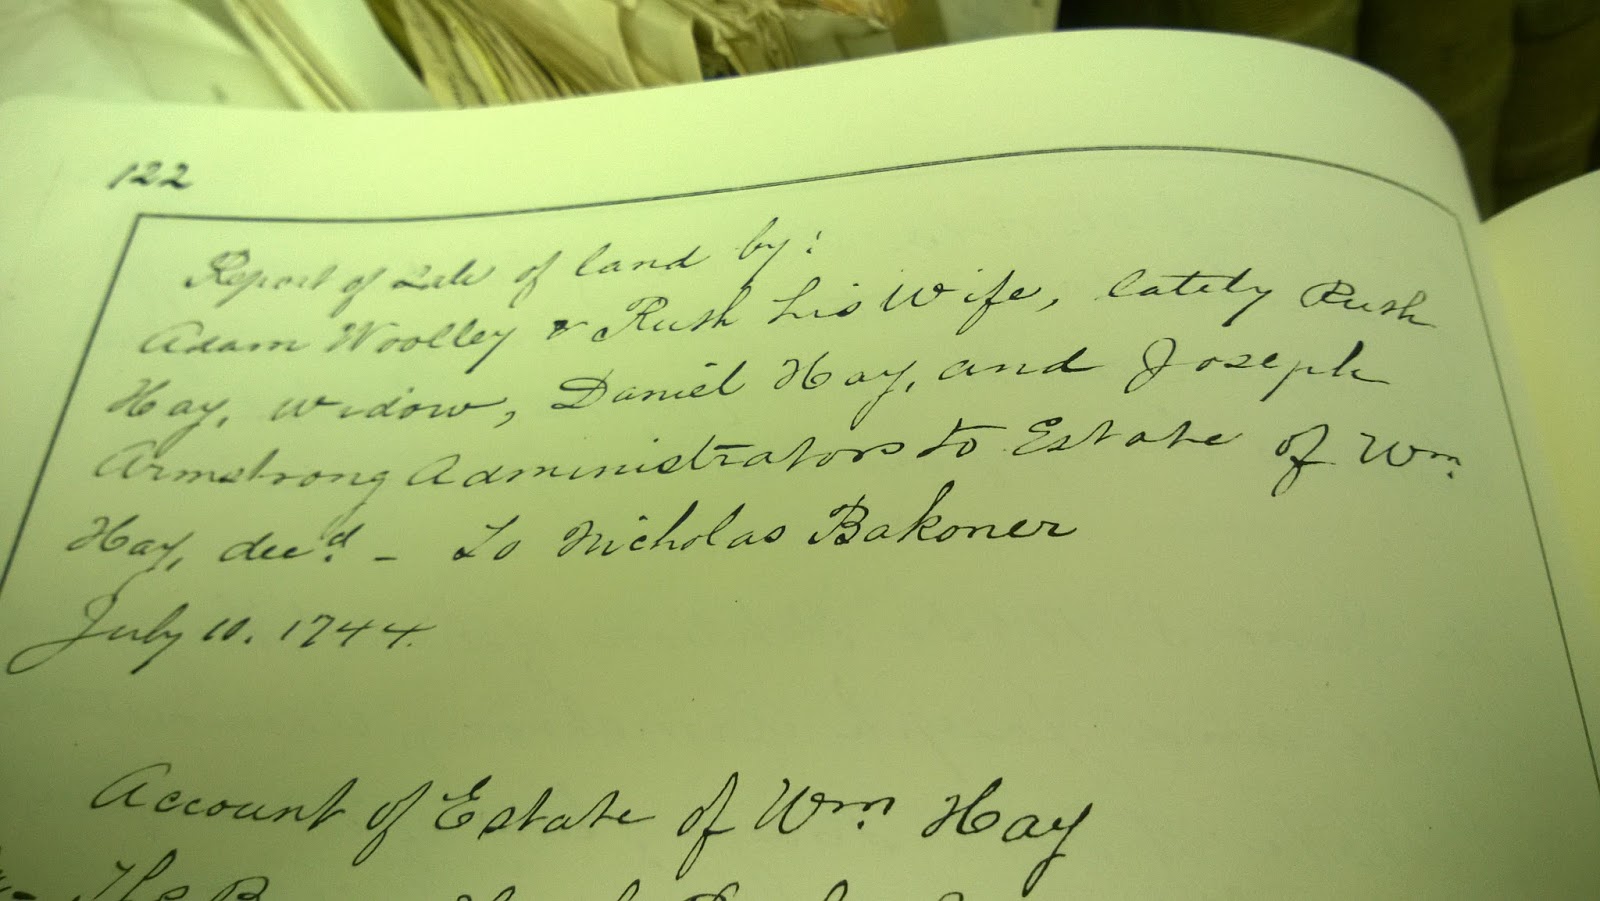 122
Report of Sale of land by:
Adam Woolley & Ruth his Wife, lately Ruth
Hay, widow, Daniel Hay, and Joseph
Armstrong Administrators to Estate of Wm.
Hay, dec'd. - To Nicholas Bakoner
July 10. 1744.
Account of Estate of Wm Hay